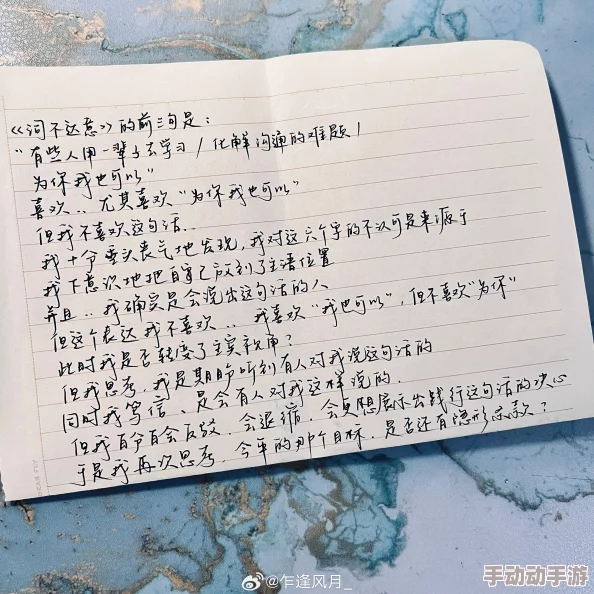 《词不达意》的前三句是：
"有些人用一辈子去学习/化解沟通的难题/
为你我也可以"
喜欢..尤其喜欢"为你我也可以"
但我不喜欢这句话..
我十分垂头丧气地发现，我对这六个字的不认可是来源于
我下意识地把自己放到了主语位置
并且..我确实是会说出这句话的人
但这个表达我不喜欢..我喜欢"我也可以"，但不喜欢"为你"
此时我是否转变了主宾视角？
但我思考，我是期盼听到有人对我说这句话的
同时我笃信、是会有人对我这样说的.
但我百分百会反驳.会退缩.会更想展示出践行这句话的决心
于是我再次思考.今年的那个目标.是否还有隐形条款？
@乍逢风月_
手动动手游